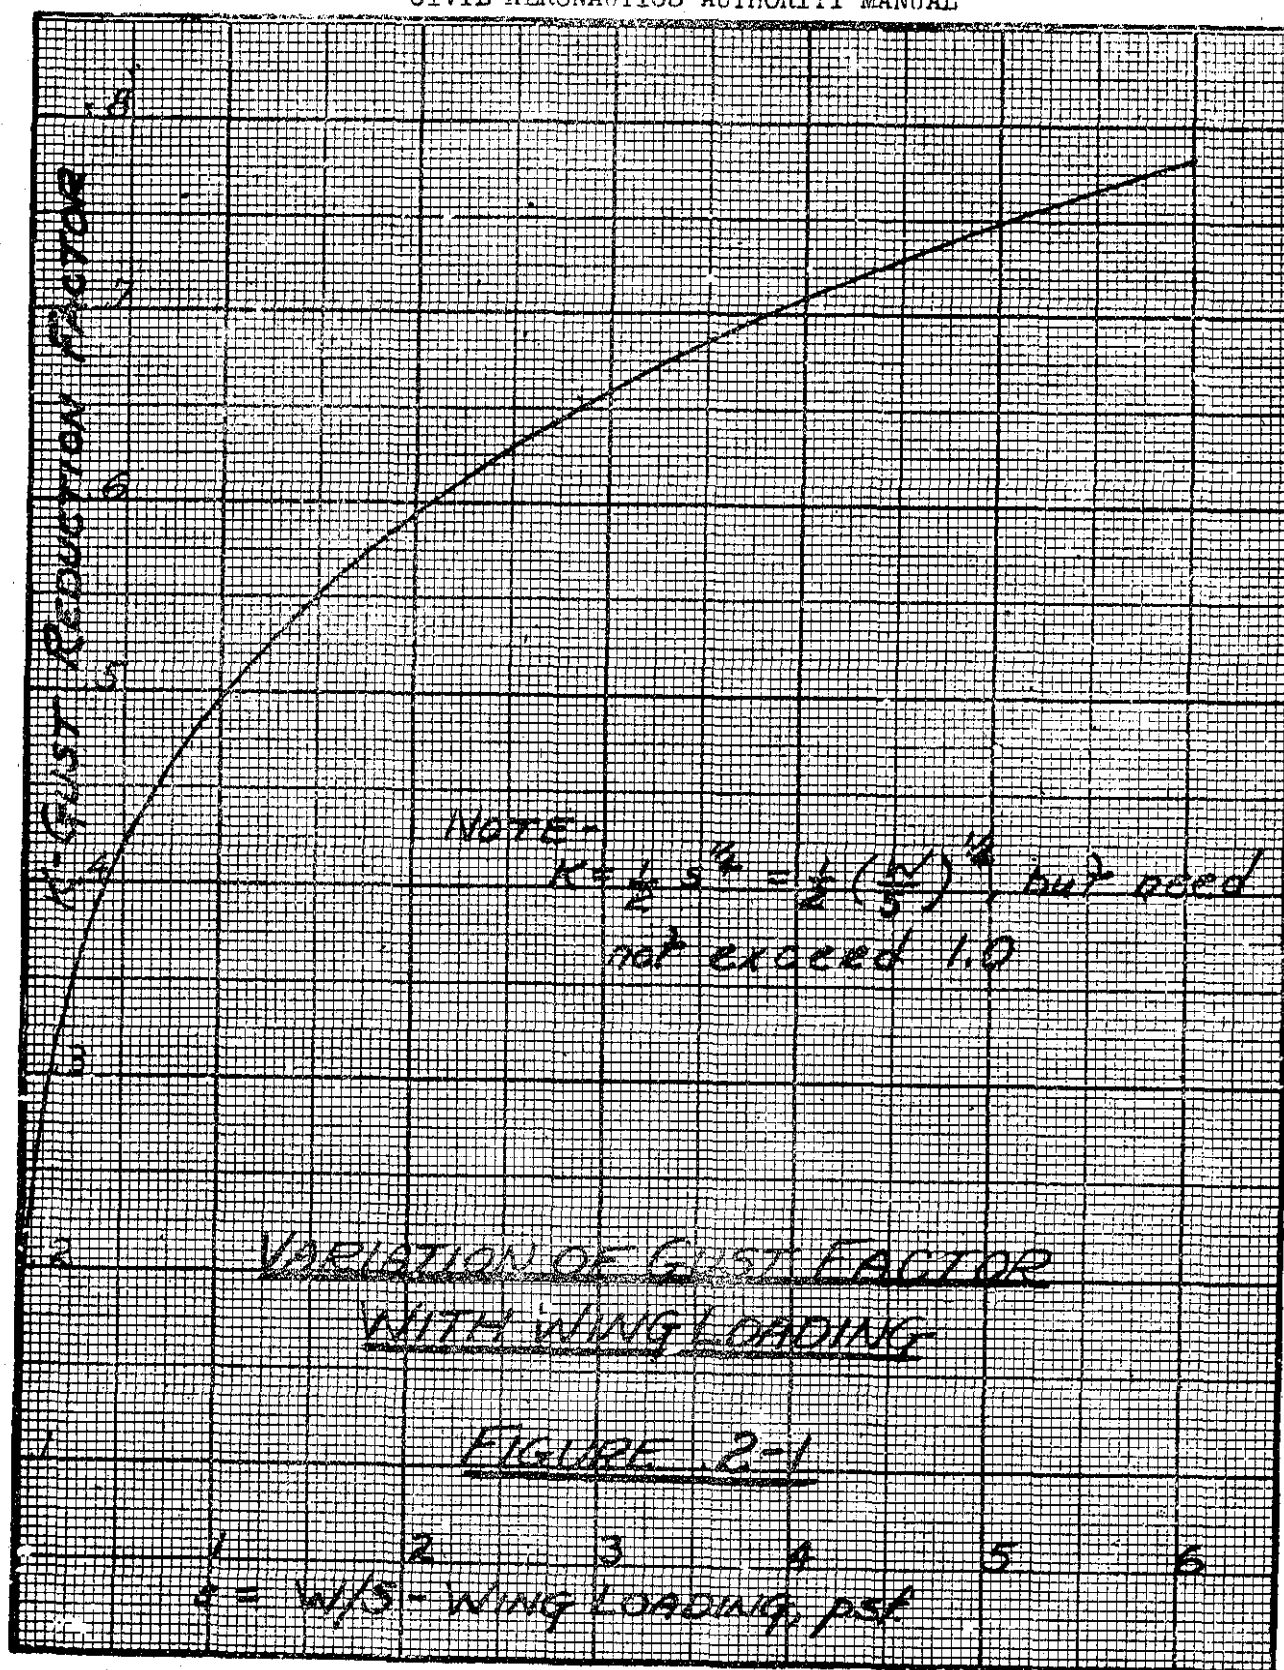 CIVIL AERONAUTICS AUTHORITY MANUAL
.8
.7
.6
.5
.4
.3
.2
.1
K-GUST REDUCTION FACTOR
NOTE-
K = 1/2 s^1/4 = 1/2 (W/S)^1/4, but need
not exceed 1.0
VARIATION OF GUST FACTOR
WITH WING LOADING
FIGURE 2-1
1 2 3 4 5 6
s = W/S - WING LOADING, psf